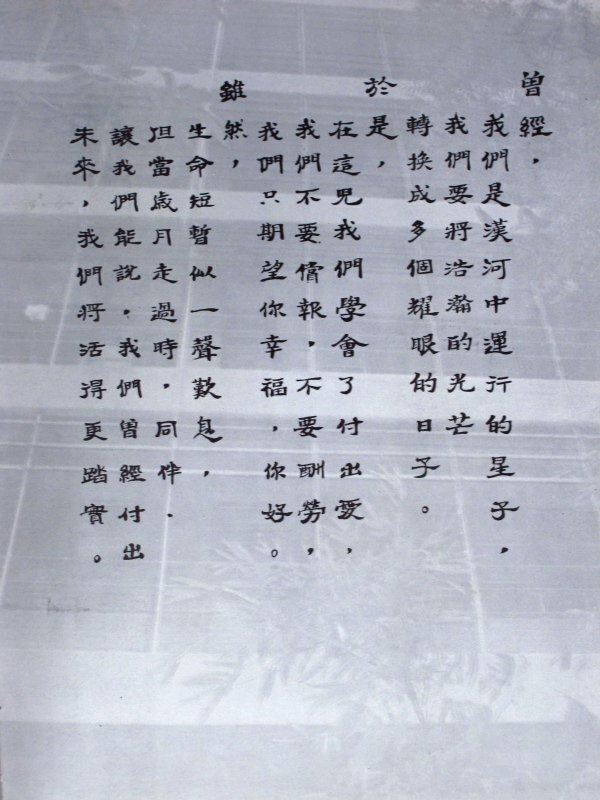 曾經，
我們是漢河中運行的星子，
我們要將浩瀚的光芒
轉換成多個耀眼的日子。
於是，
在這兒我們學會了付出愛，
我們不要償報，不要酬勞，
我們只期望你幸福，你好。
雖然，
生命短暫似一聲歎息，
但當歲月走過時，同伴．
讓我們能說，我們曾經付出
未來，我們將活得更踏實。